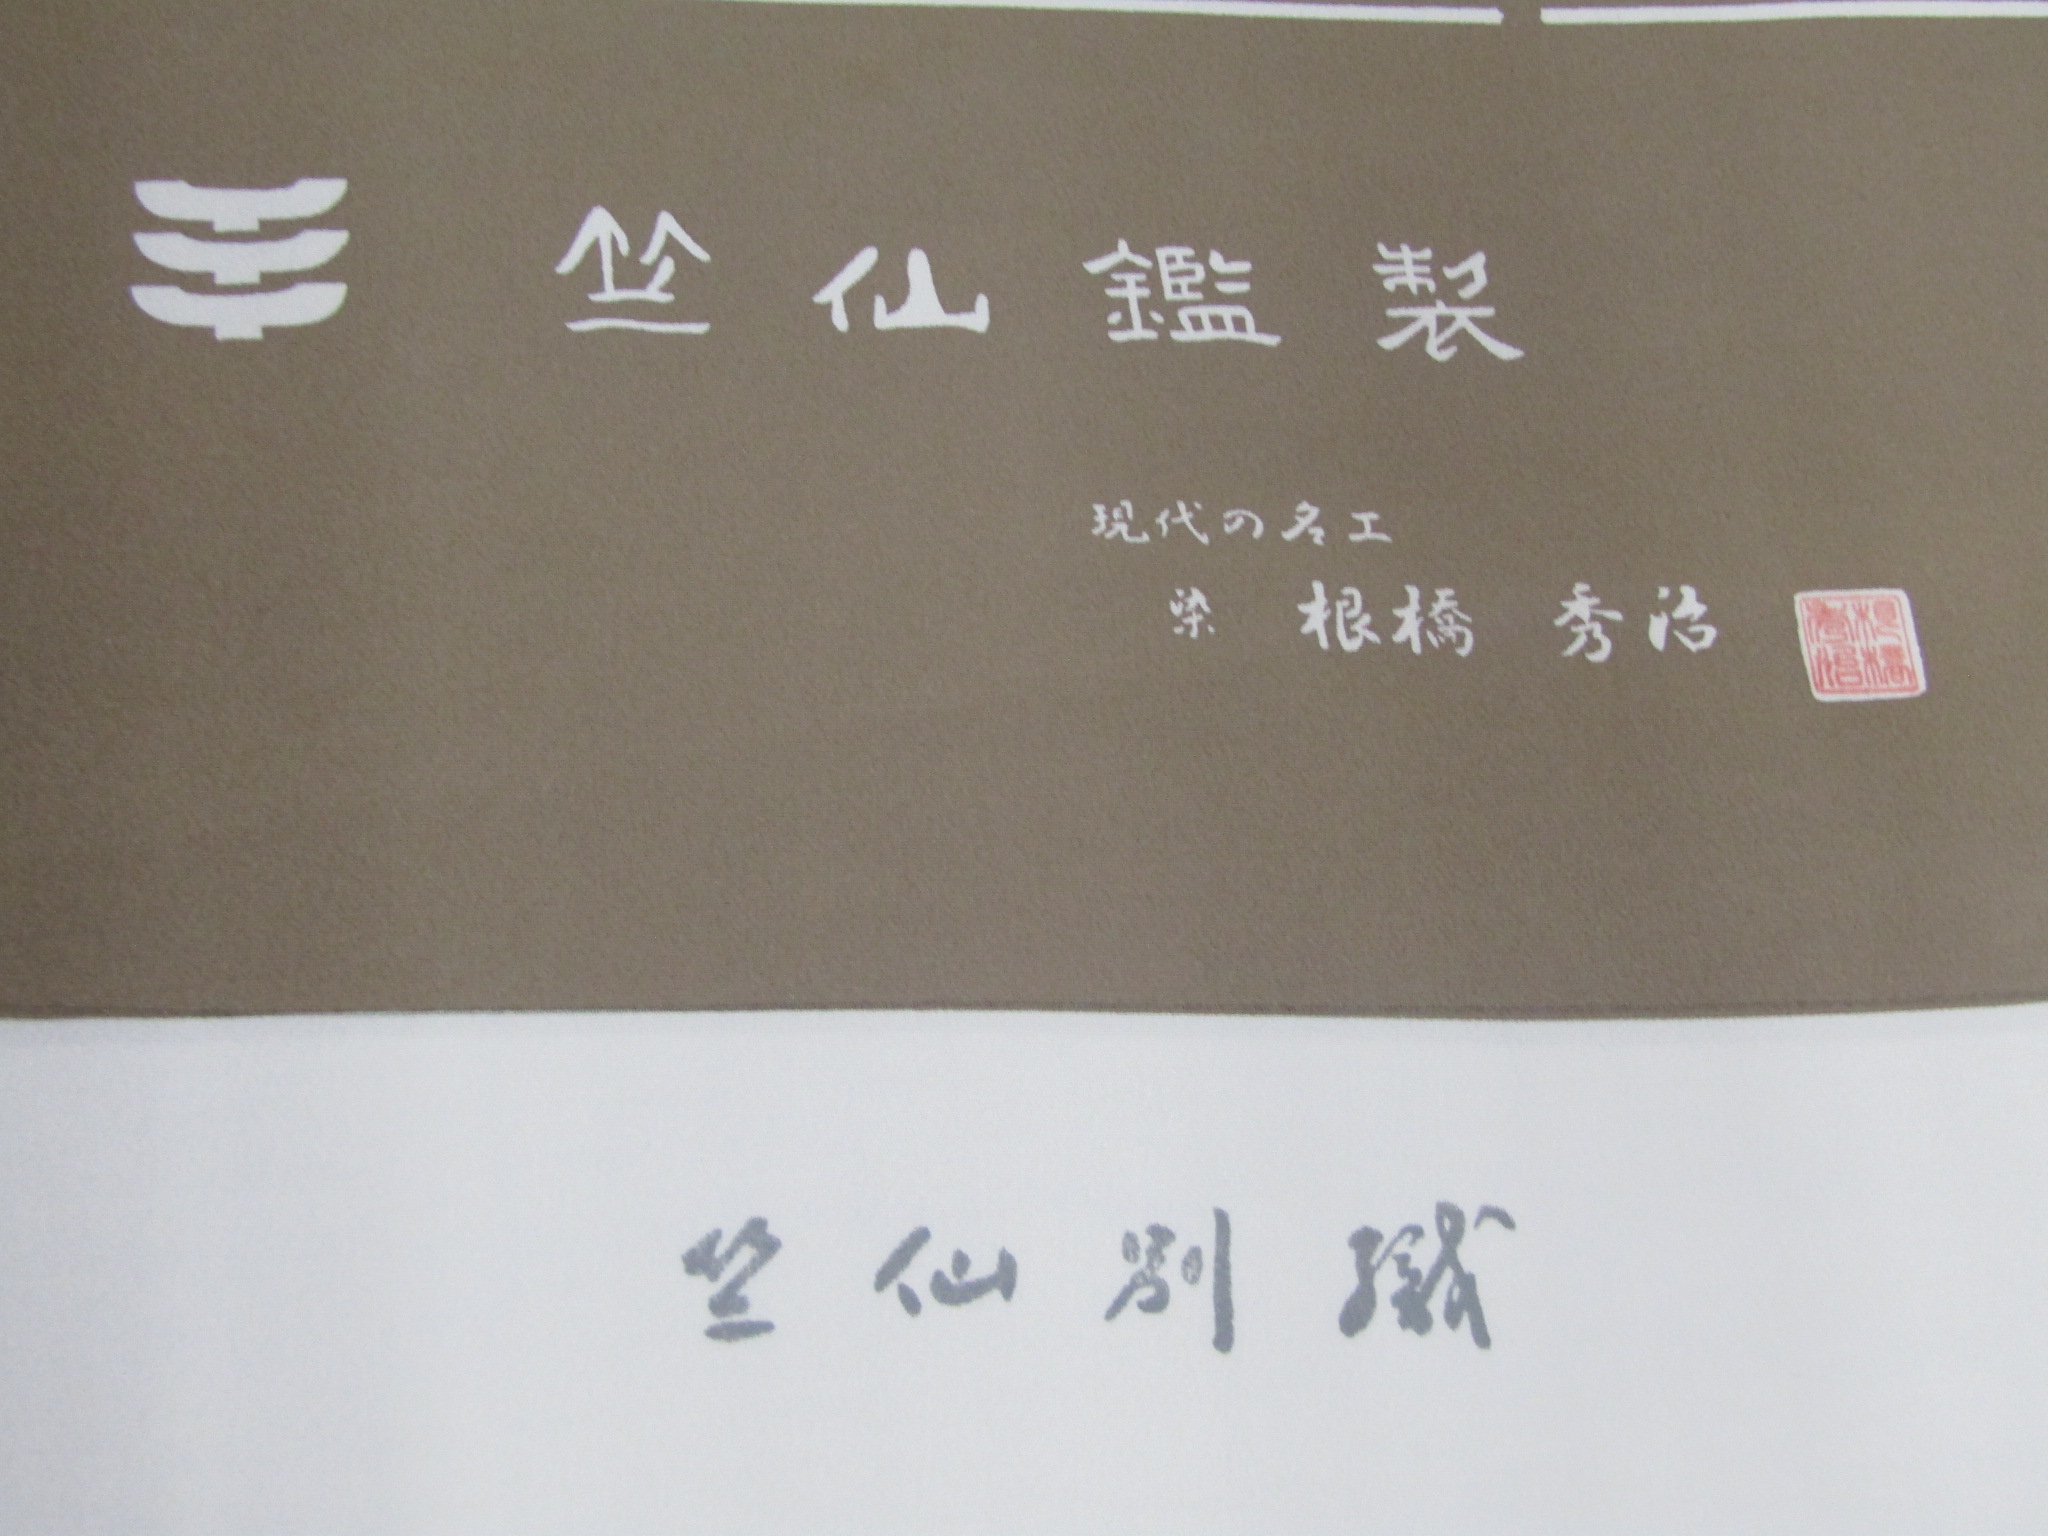 竺仙鑑製
現代の名工
染 根橋 秀治
根橋秀治
竺仙別織